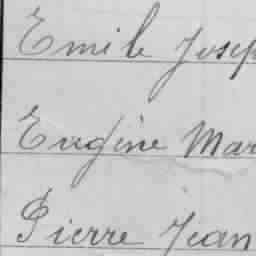 Emile Josep
Eugène Mar
Pierre Jean